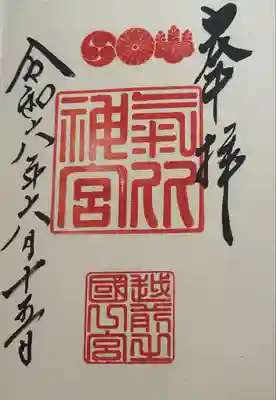 奉拝
氣比神宮
越前之國一宮
令和六年六月十五日